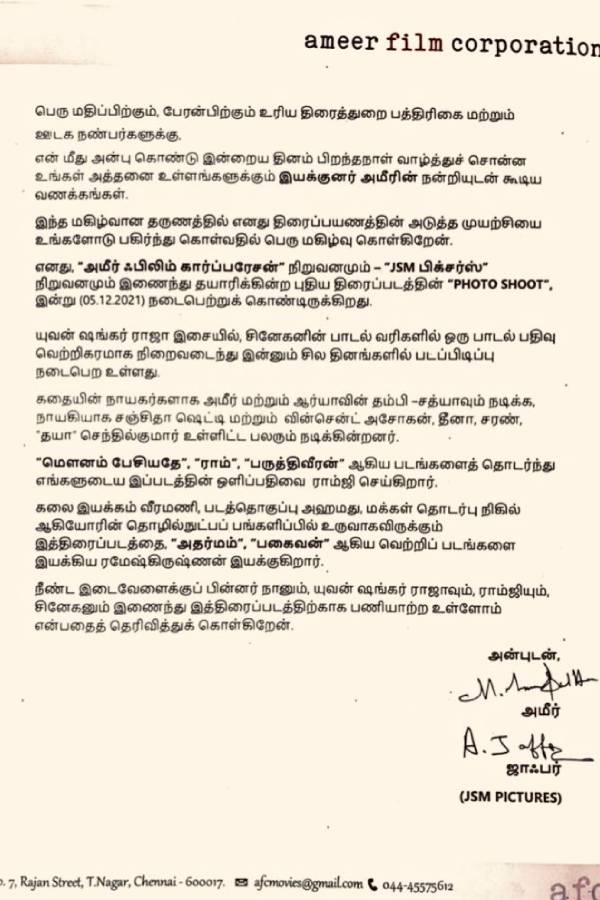 ameer film corporation
பெரு மதிப்பிற்கும், பேரன்பிற்கும் உரிய திரைத்துறை பத்திரிகை மற்றும்
ஊடக நண்பர்களுக்கு,
என் மீது அன்பு கொண்டு இன்றைய தினம் பிறந்தநாள் வாழ்த்துச் சொன்ன
உங்கள் அத்தனை உள்ளங்களுக்கும் இயக்குனர் அமீரின் நன்றியுடன் கூடிய
வணக்கங்கள்.
இந்த மகிழ்வான தருணத்தில் எனது திரைப்பயணத்தின் அடுத்த முயற்சியை
உங்களோடு பகிர்ந்து கொள்வதில் பெரு மகிழ்வு கொள்கிறேன்.
எனது, "அமீர் ஃபிலிம் கார்ப்பரேசன்" நிறுவனமும் – "JSM பிக்சர்ஸ்"
நிறுவனமும் இணைந்து தயாரிக்கின்ற புதிய திரைப்படத்தின் "PHOTO SHOOT",
இன்று (05.12.2021) நடைபெற்றுக் கொண்டிருக்கிறது.
யுவன் ஷங்கர் ராஜா இசையில், சினேகனின் பாடல் வரிகளில் ஒரு பாடல் பதிவு
வெற்றிகரமாக நிறைவடைந்து இன்னும் சில தினங்களில் படப்பிடிப்பு
நடைபெற உள்ளது.
கதையின் நாயகர்களாக அமீர் மற்றும் ஆர்யாவின் தம்பி –சத்யாவும் நடிக்க,
நாயகியாக சஞ்சிதா ஷெட்டி மற்றும் வின்சென்ட் அசோகன், தீனா, சரண்,
"தயா" செந்தில்குமார் உள்ளிட்ட பலரும் நடிக்கின்றனர்.
"மௌனம் பேசியதே", "ராம்", "பருத்திவீரன்" ஆகிய படங்களைத் தொடர்ந்து
எங்களுடைய இப்படத்தின் ஒளிப்பதிவை ராம்ஜி செய்கிறார்.
கலை இயக்கம் வீரமணி, படத்தொகுப்பு அஹமது, மக்கள் தொடர்பு நிகில்
ஆகியோரின் தொழில்நுட்பப் பங்களிப்பில் உருவாகவிருக்கும்
இத்திரைப்படத்தை, "அதர்மம்", "பகைவன்" ஆகிய வெற்றிப் படங்களை
இயக்கிய ரமேஷ்கிருஷ்ணன் இயக்குகிறார்.
நீண்ட இடைவேளைக்குப் பின்னர் நானும், யுவன் ஷங்கர் ராஜாவும், ராம்ஜியும்,
சினேகனும் இணைந்து இத்திரைப்படத்திற்காக பணியாற்ற உள்ளோம்
என்பதைத் தெரிவித்துக் கொள்கிறேன்.
அன்புடன்,
அமீர்
A. Jaffer
ஜாஃபர்
(JSM PICTURES)
o. 7, Rajan Street, T.Nagar, Chennai - 600017. afcmovies@gmail.com 044-45575612
afc